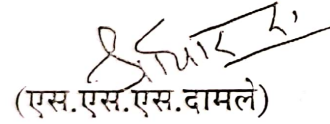 (एस.एस.एस.दामले)